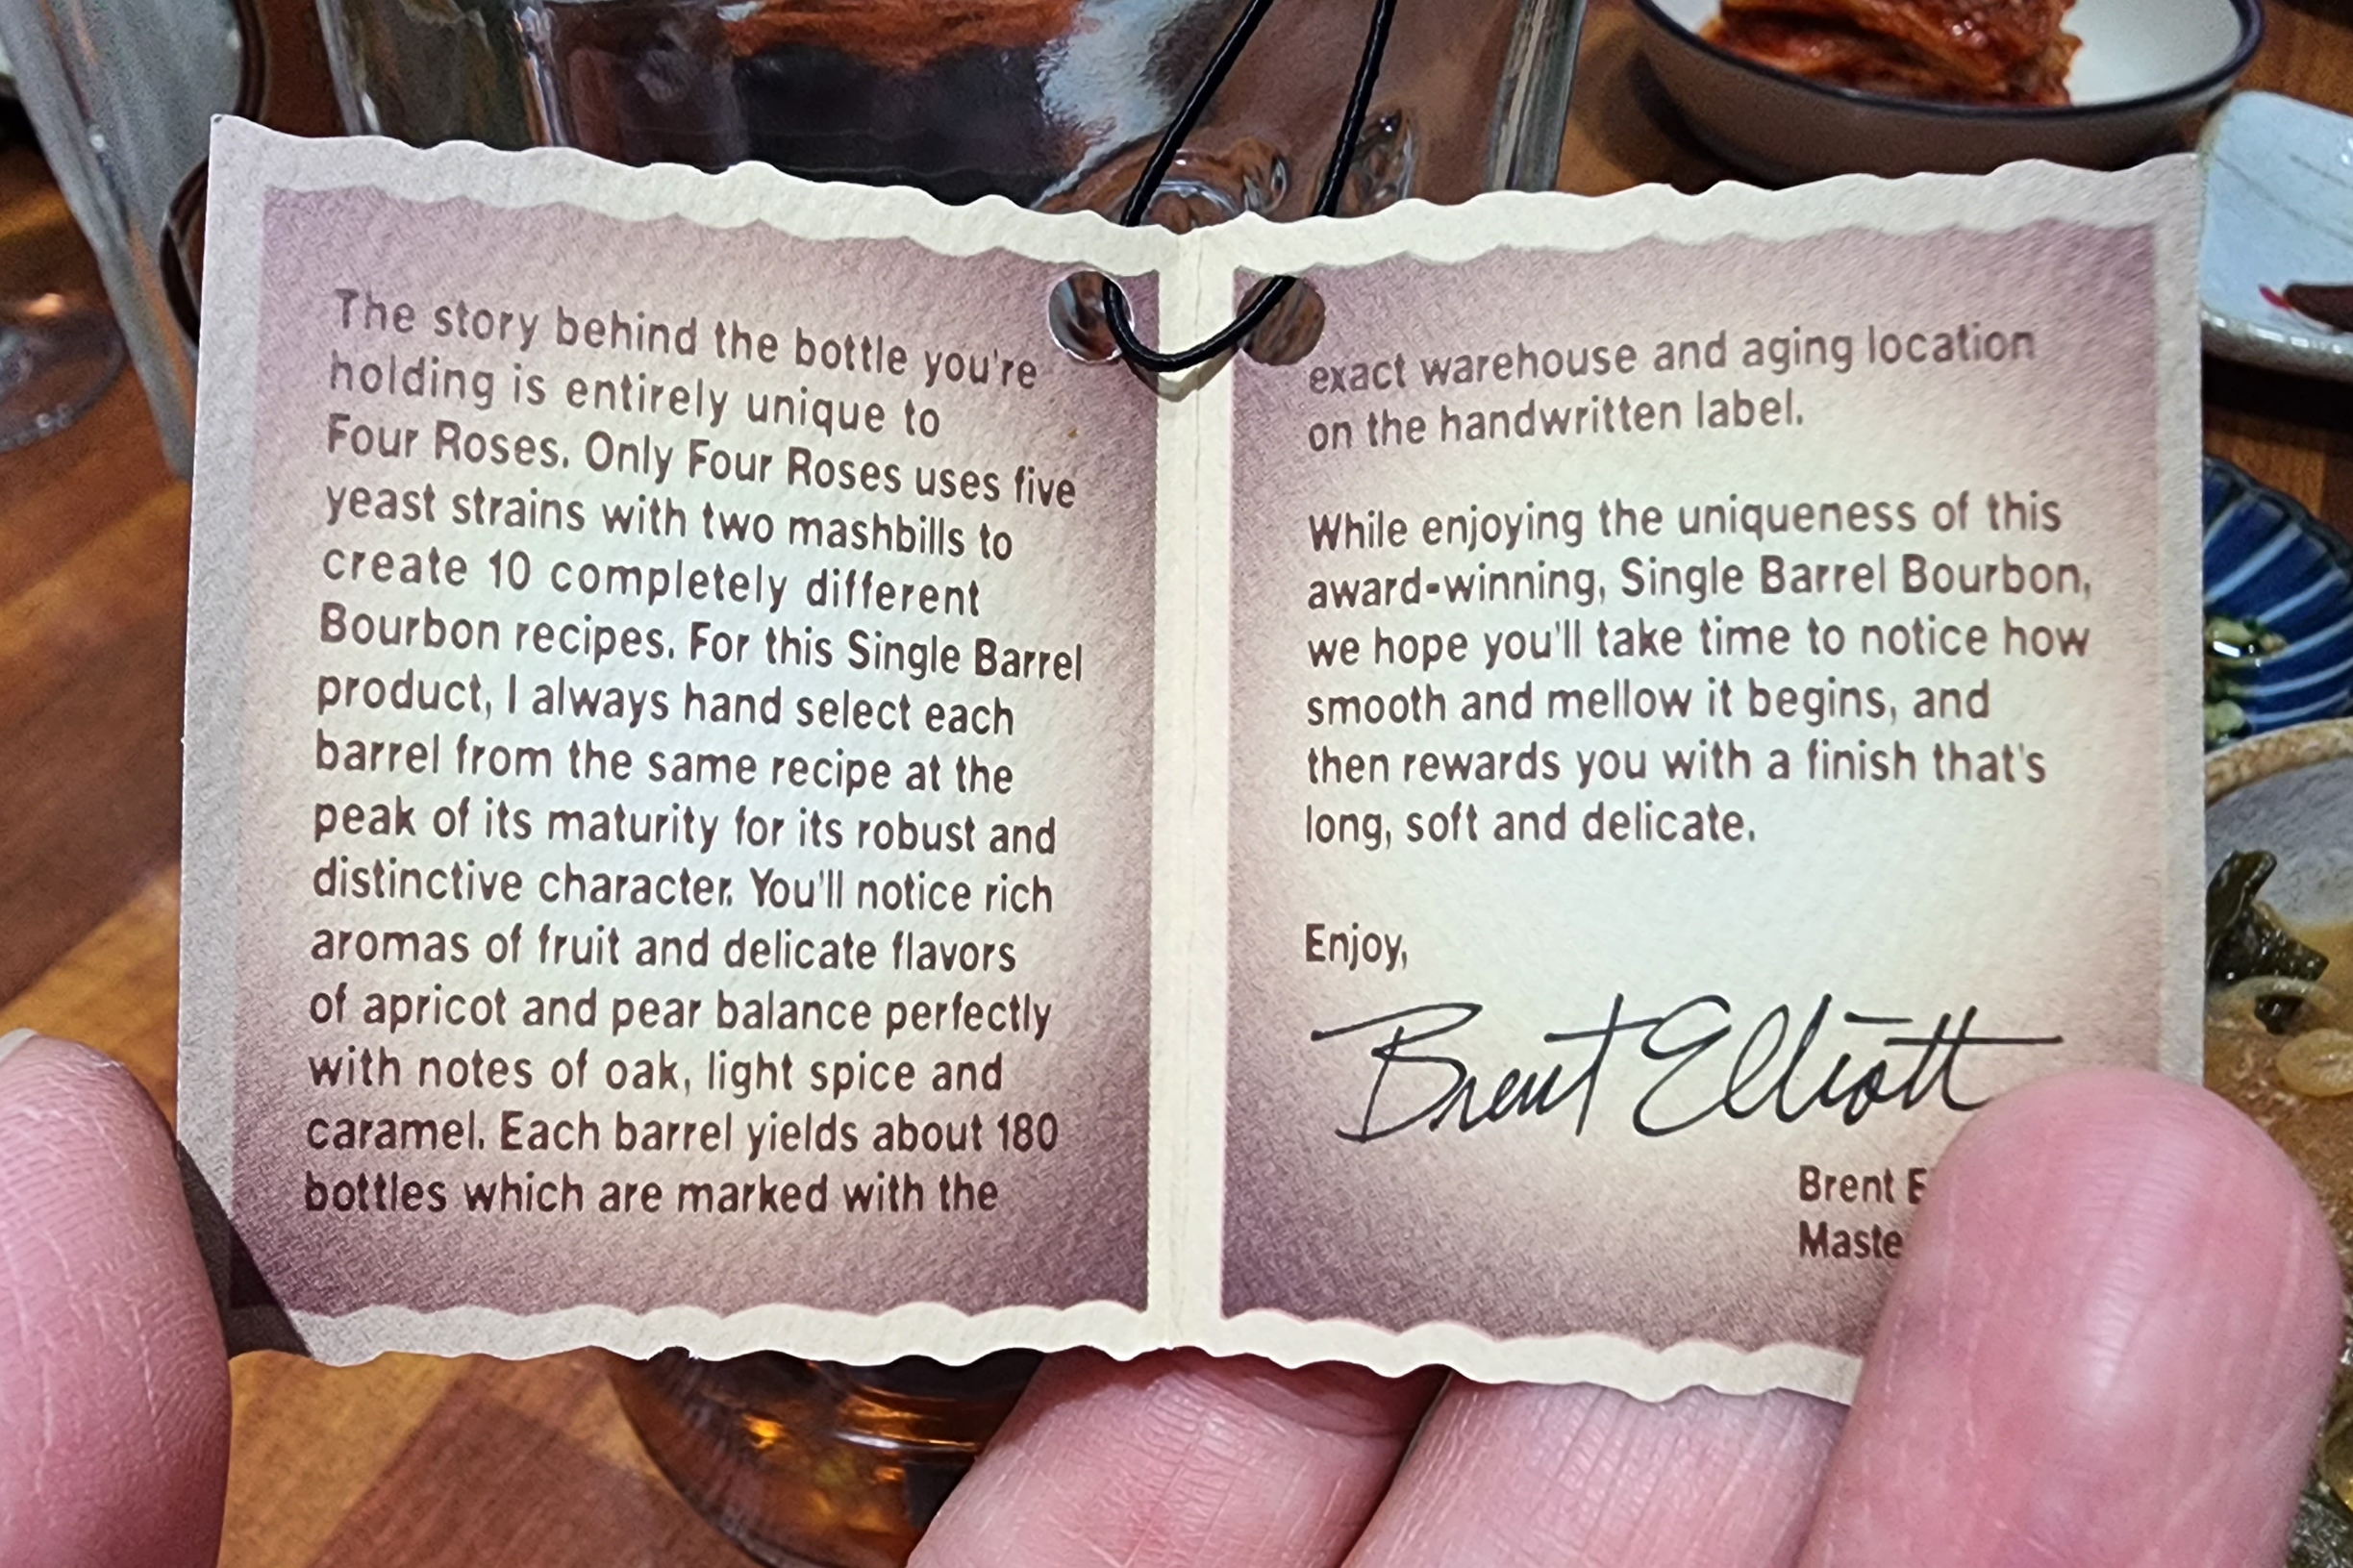 The story behind the bottle you're
holding is entirely unique to
Four Roses. Only Four Roses uses five
yeast strains with two mashbills to
create 10 completely different
Bourbon recipes. For this Single Barrel
product, I always hand select each
barrel from the same recipe at the
peak of its maturity for its robust and
distinctive character. You'll notice rich
aromas of fruit and delicate flavors
of apricot and pear balance perfectly
with notes of oak, light spice and
caramel. Each barrel yields about 180
bottles which are marked with the
exact warehouse and aging location
on the handwritten label.
While enjoying the uniqueness of this
award-winning, Single Barrel Bourbon,
we hope you'll take time to notice how
smooth and mellow it begins, and
then rewards you with a finish that's
long, soft and delicate.
Enjoy,
Brent Elliott
Brent